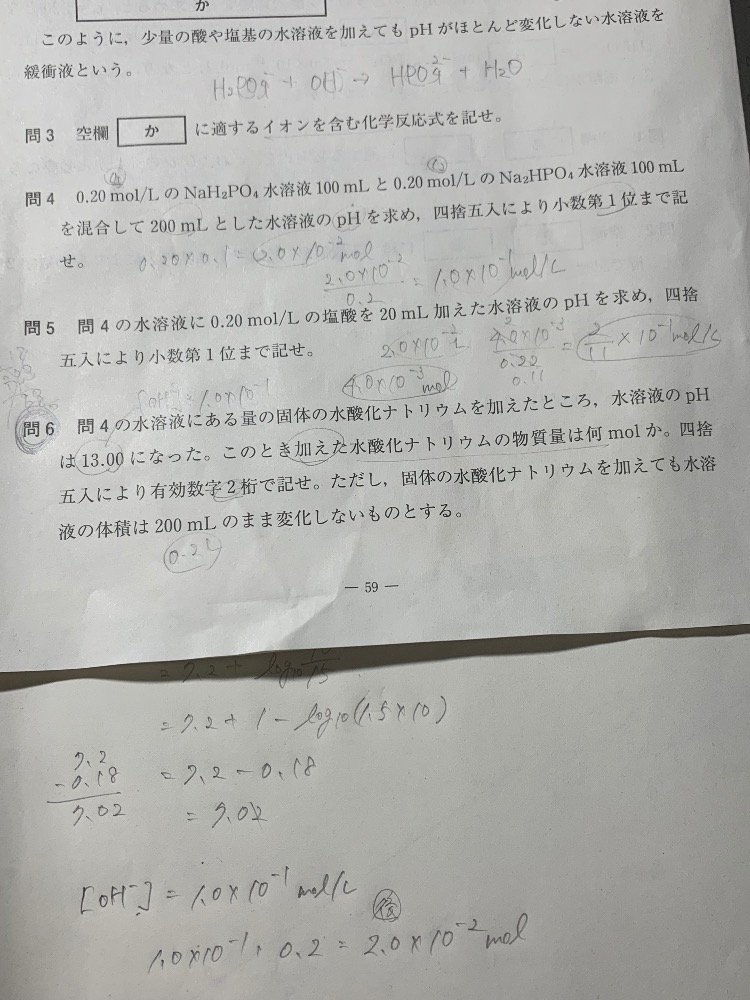 か
このように，少量の酸や塩基の水溶液を加えても pH がほとんど変化しない水溶液を
緩衝液という。
H₂PO₄⁻ + OH⁻ → HPO₄²⁻ + H₂O
問 3 空欄 か に適するイオンを含む化学反応式を記せ。
問 4 0.20 mol/L の NaH₂PO₄ 水溶液 100 mL と 0.20 mol/L の Na₂HPO₄ 水溶液 100 mL
を混合して 200 mL とした水溶液の pH を求め，四捨五入により小数第 1 位まで記
せ。
0.20×0.1 = 2.0×10⁻² mol
2.0×10⁻²/0.2 = 1.0×10⁻¹ mol/L
問 5 問 4 の水溶液に 0.20 mol/L の塩酸を 20 mL 加えた水溶液の pH を求め，四捨
五入により小数第 1 位まで記せ。
2.0×10⁻²
4.0×10⁻³/0.22 = 2/11 × 10⁻¹ mol/L
0.11
4.0×10⁻³ mol
[OH⁻] = 1.0×10⁻¹
問 6 問 4 の水溶液にある量の固体の水酸化ナトリウムを加えたところ，水溶液の pH
は 13.00 になった。このとき加えた水酸化ナトリウムの物質量は何 mol か。四捨
五入により有効数字 2 桁で記せ。ただし，固体の水酸化ナトリウムを加えても水溶
液の体積は 200 mL のまま変化しないものとする。
0.2L
— 59 —
= 7.2 + log₁₀ /15
= 7.2 + 1 - log₁₀(1.5×10)
7.2
-0.18
7.02
= 7.2 - 0.18
= 7.02
[OH⁻] = 1.0×10⁻¹ mol/L
1.0×10⁻¹ · 0.2 = 2.0×10⁻² mol